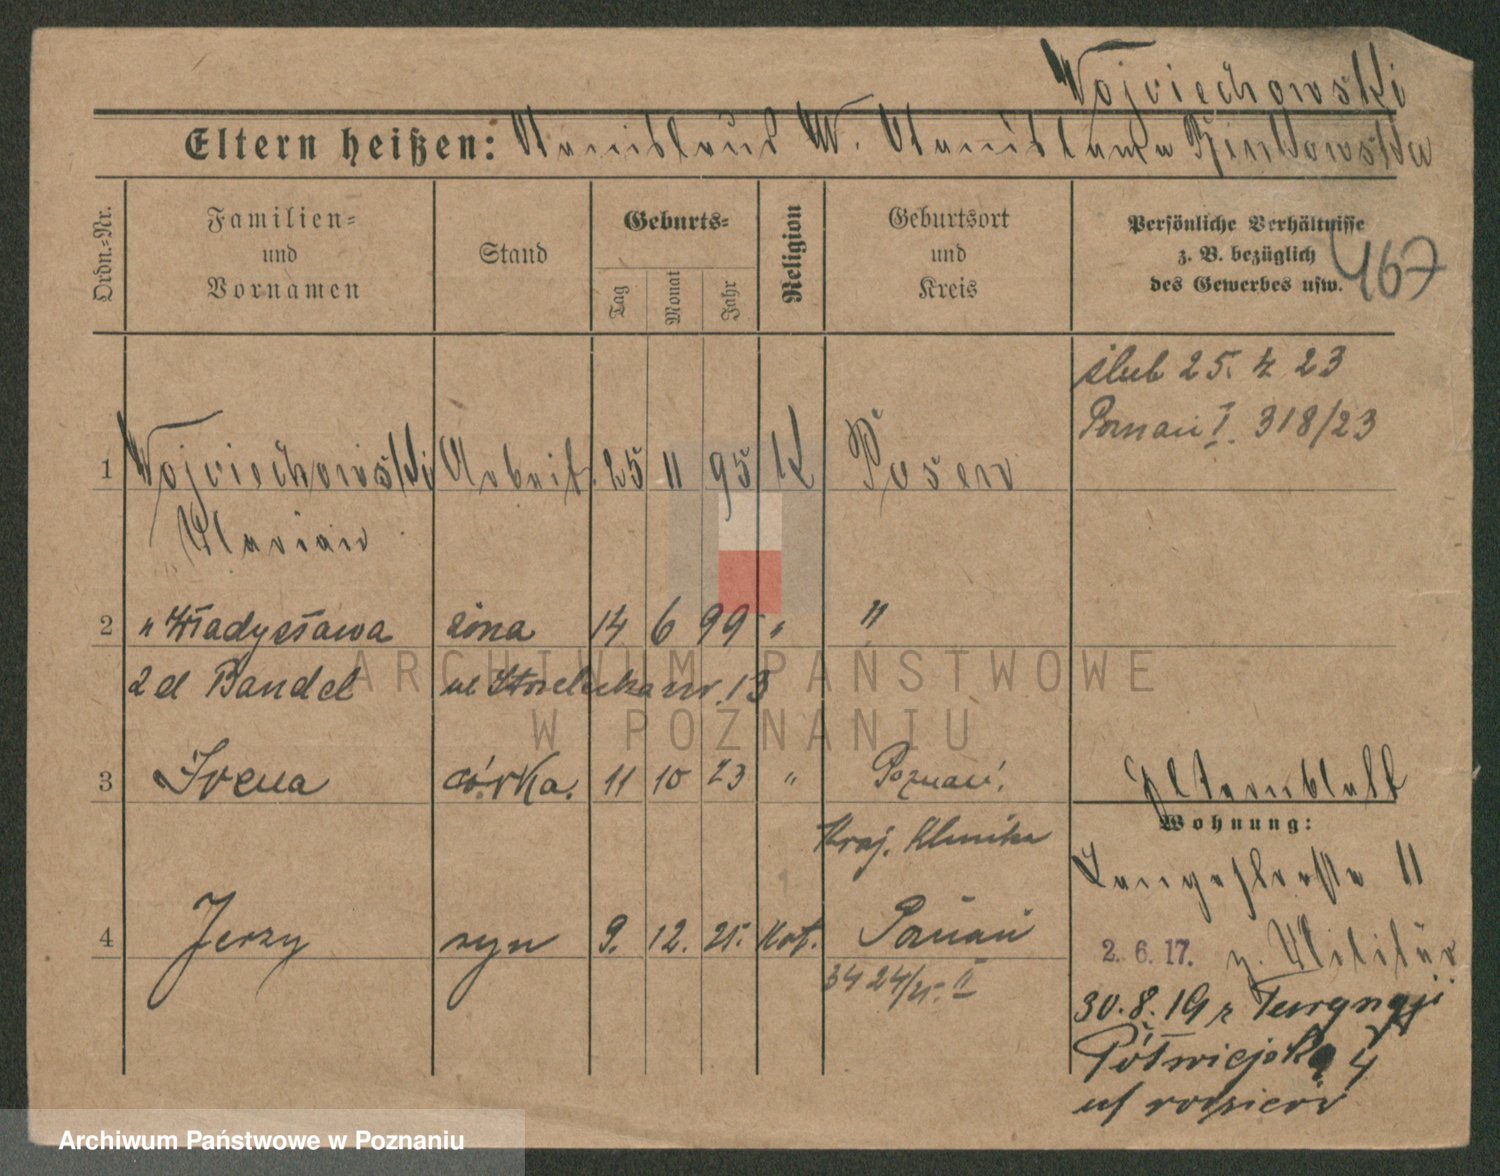 Wojciechowski
Eltern heißen: Stanislaus W. Stanislawa
Ordn.-Nr.
Familien- und Vornamen
Stand
Geburts-
Tag Monat Jahr
Religion
Geburtsort und Kreis
Persönliche Verhältnisse z. B. bezüglich des Gewerbes usw.
467
ślub 25. 4 23
Poznań I. 318/23
1 Wojciechowski Arbeit. 25 11 95 K Posen
Marian
2 " Władysława żona 14 6 99 " "
2 d Bandel ul Strzelecka nr. 13
3 Irena córka. 11 10 23 " Poznań.
Kraj. Klinika
4 Jerzy syn 9. 12. 25. Kat. Poznań
3424/25. II
Elternblatt
Wohnung:
11
2. 6. 17. z. Militär
30. 8. 19 z
Półwiejska 4
u rodziców
ARCHIWUM PAŃSTWOWE
W POZNANIU
Archiwum Państwowe w Poznaniu